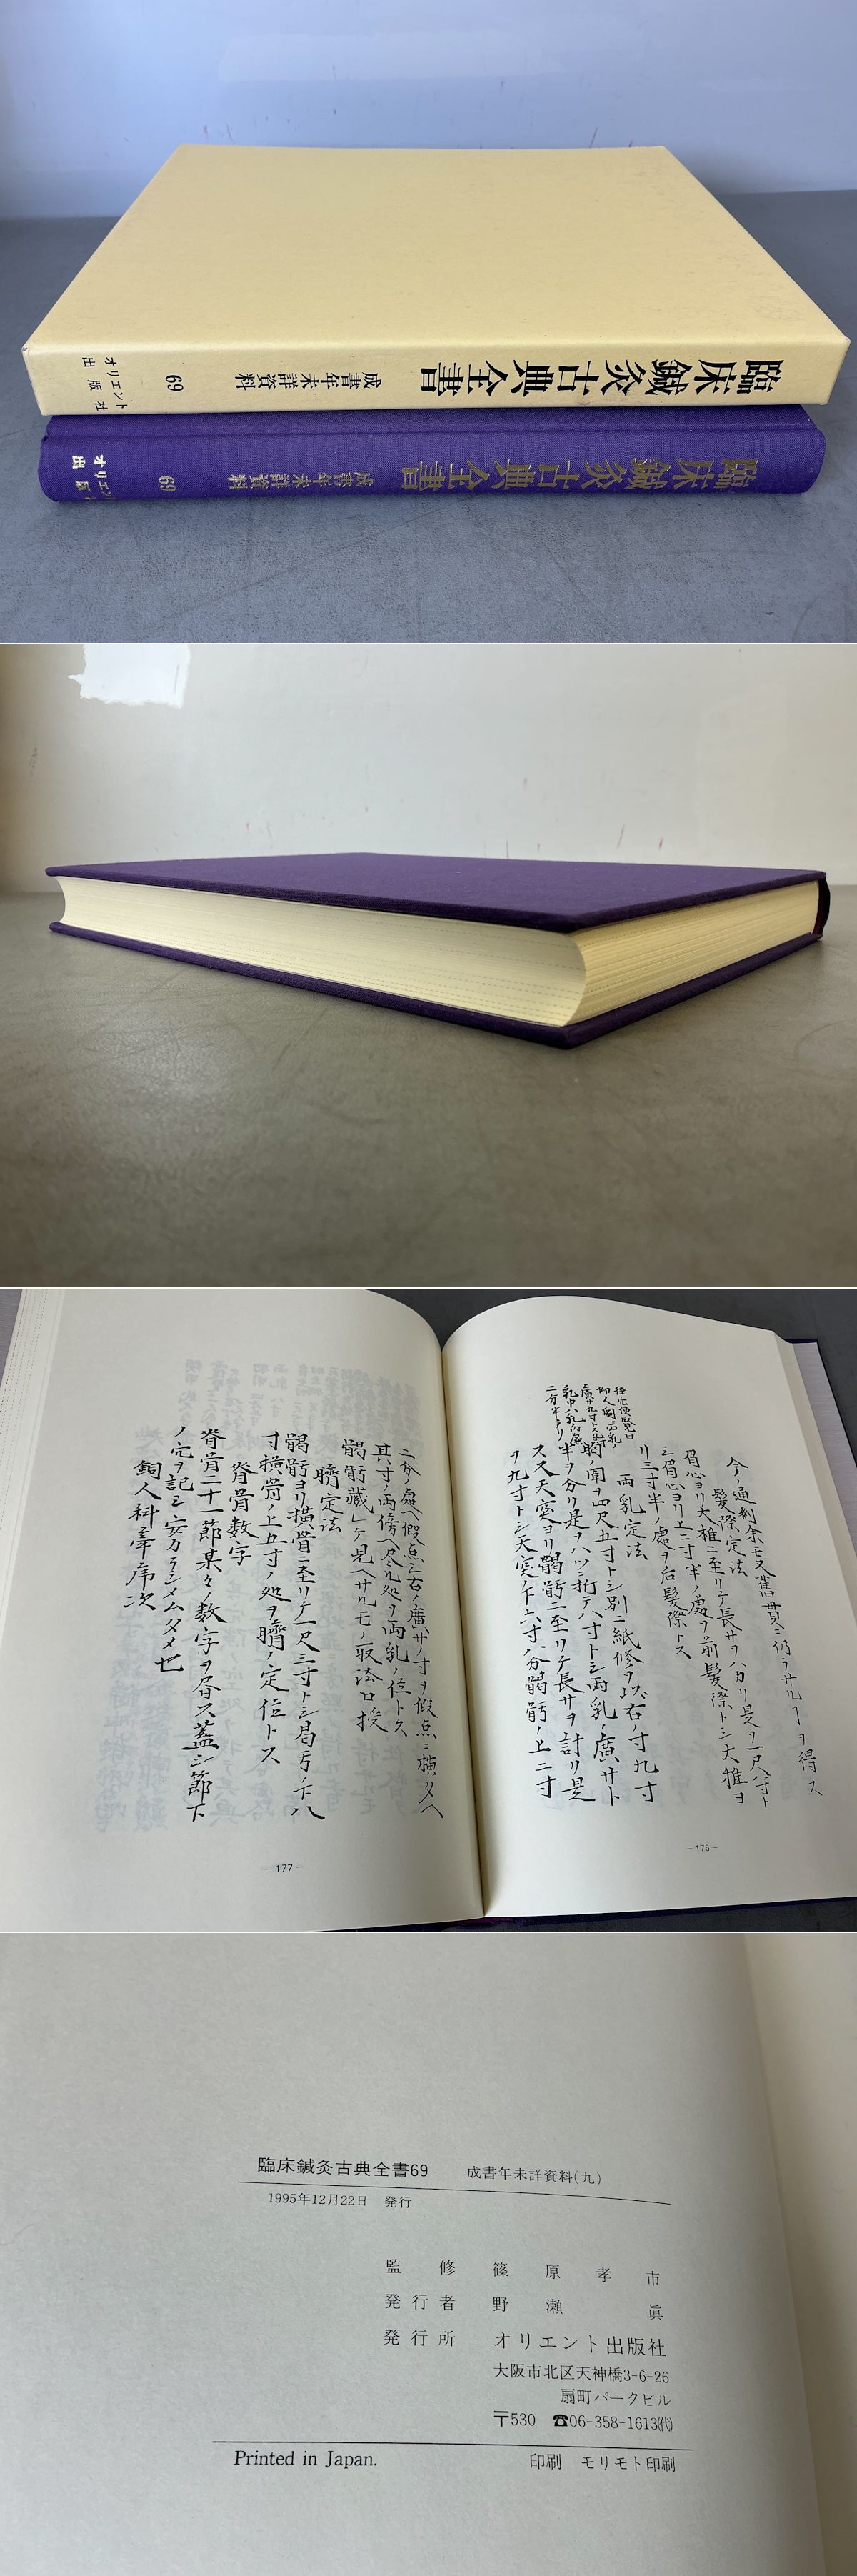 臨床鍼灸古典全書
成書年未詳資料
69
オリエント
出版社
臨床鍼灸古典全書
成書年未詳資料
69
オリエン
出版
今ノ通剰余モ又舊貫ニ仍ラサル㆒ヲ得ス
髪際定法
眉心ヨリ大椎ニ至リテ長サヲハカリ是ヲ一尺八寸ト
シ眉心ヨリ上三寸半ノ處ヲ前髪際トシ大椎ヨ
リ三寸半ノ處ヲ后髪際トス
両乳定法
胸ノ間ヲ四尺五寸トシ別ニ紙條ヲ以右ノ寸九寸
半ヲ分リ是ヲ八ツニ折テ八寸トシ両乳ノ廣サト
ス又天突ヨリ𩩲骬ニ至リテ長サヲ計リ是
ヲ九寸トシ天突ノ下六寸ノ分𩩲骬ノ上二寸
-176-
二分ノ處ヘ假点シ右ノ廣サノ寸ヲ假点ニ横タヘ
其寸ノ両傍ヘ尽ル処ヲ両乳ノ位トス
𩩲骬藏レケ見ヘサルモノ取法口授
臍定法
𩩲骬ヨリ横骨ニ至リテ一尺三寸トシ𩩲骬ノ下八
寸横骨ノ上五寸ノ処ヲ臍ノ定位トス
脊骨数字
脊骨二十一節某々ノ数字ヲ居ス蓋シ節下
ノ穴ヲ記シ安カラシメムタメ也
銅人科牽席次
-177-
臨床鍼灸古典全書69 成書年未詳資料(九)
1995年12月22日 発行
監修 篠原孝市
発行者 野瀬眞
発行所 オリエント出版社
大阪市北区天神橋3-6-26
扇町パークビル
〒530 ☎06-358-1613㈹
Printed in Japan. 印刷 モリモト印刷